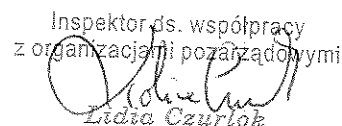 Inspektor ds. współpracy
z organizacjami pozarządowymi
Lidia Czurlok